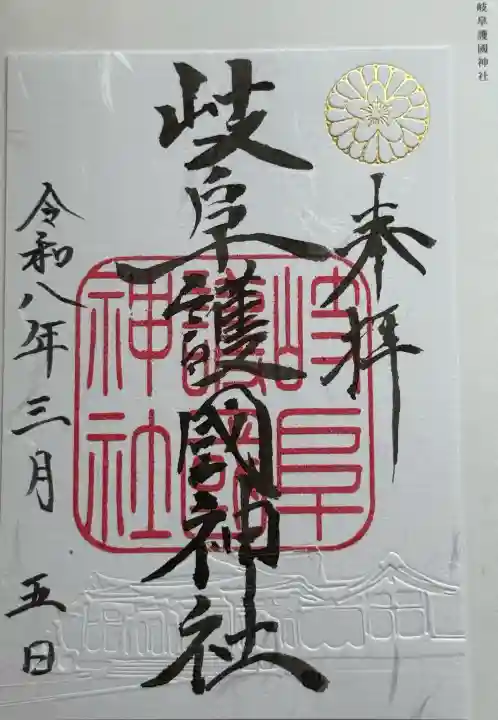 岐阜護國神社
奉拝
岐阜護國神社
岐阜
護國
神社
令和八年三月 五日